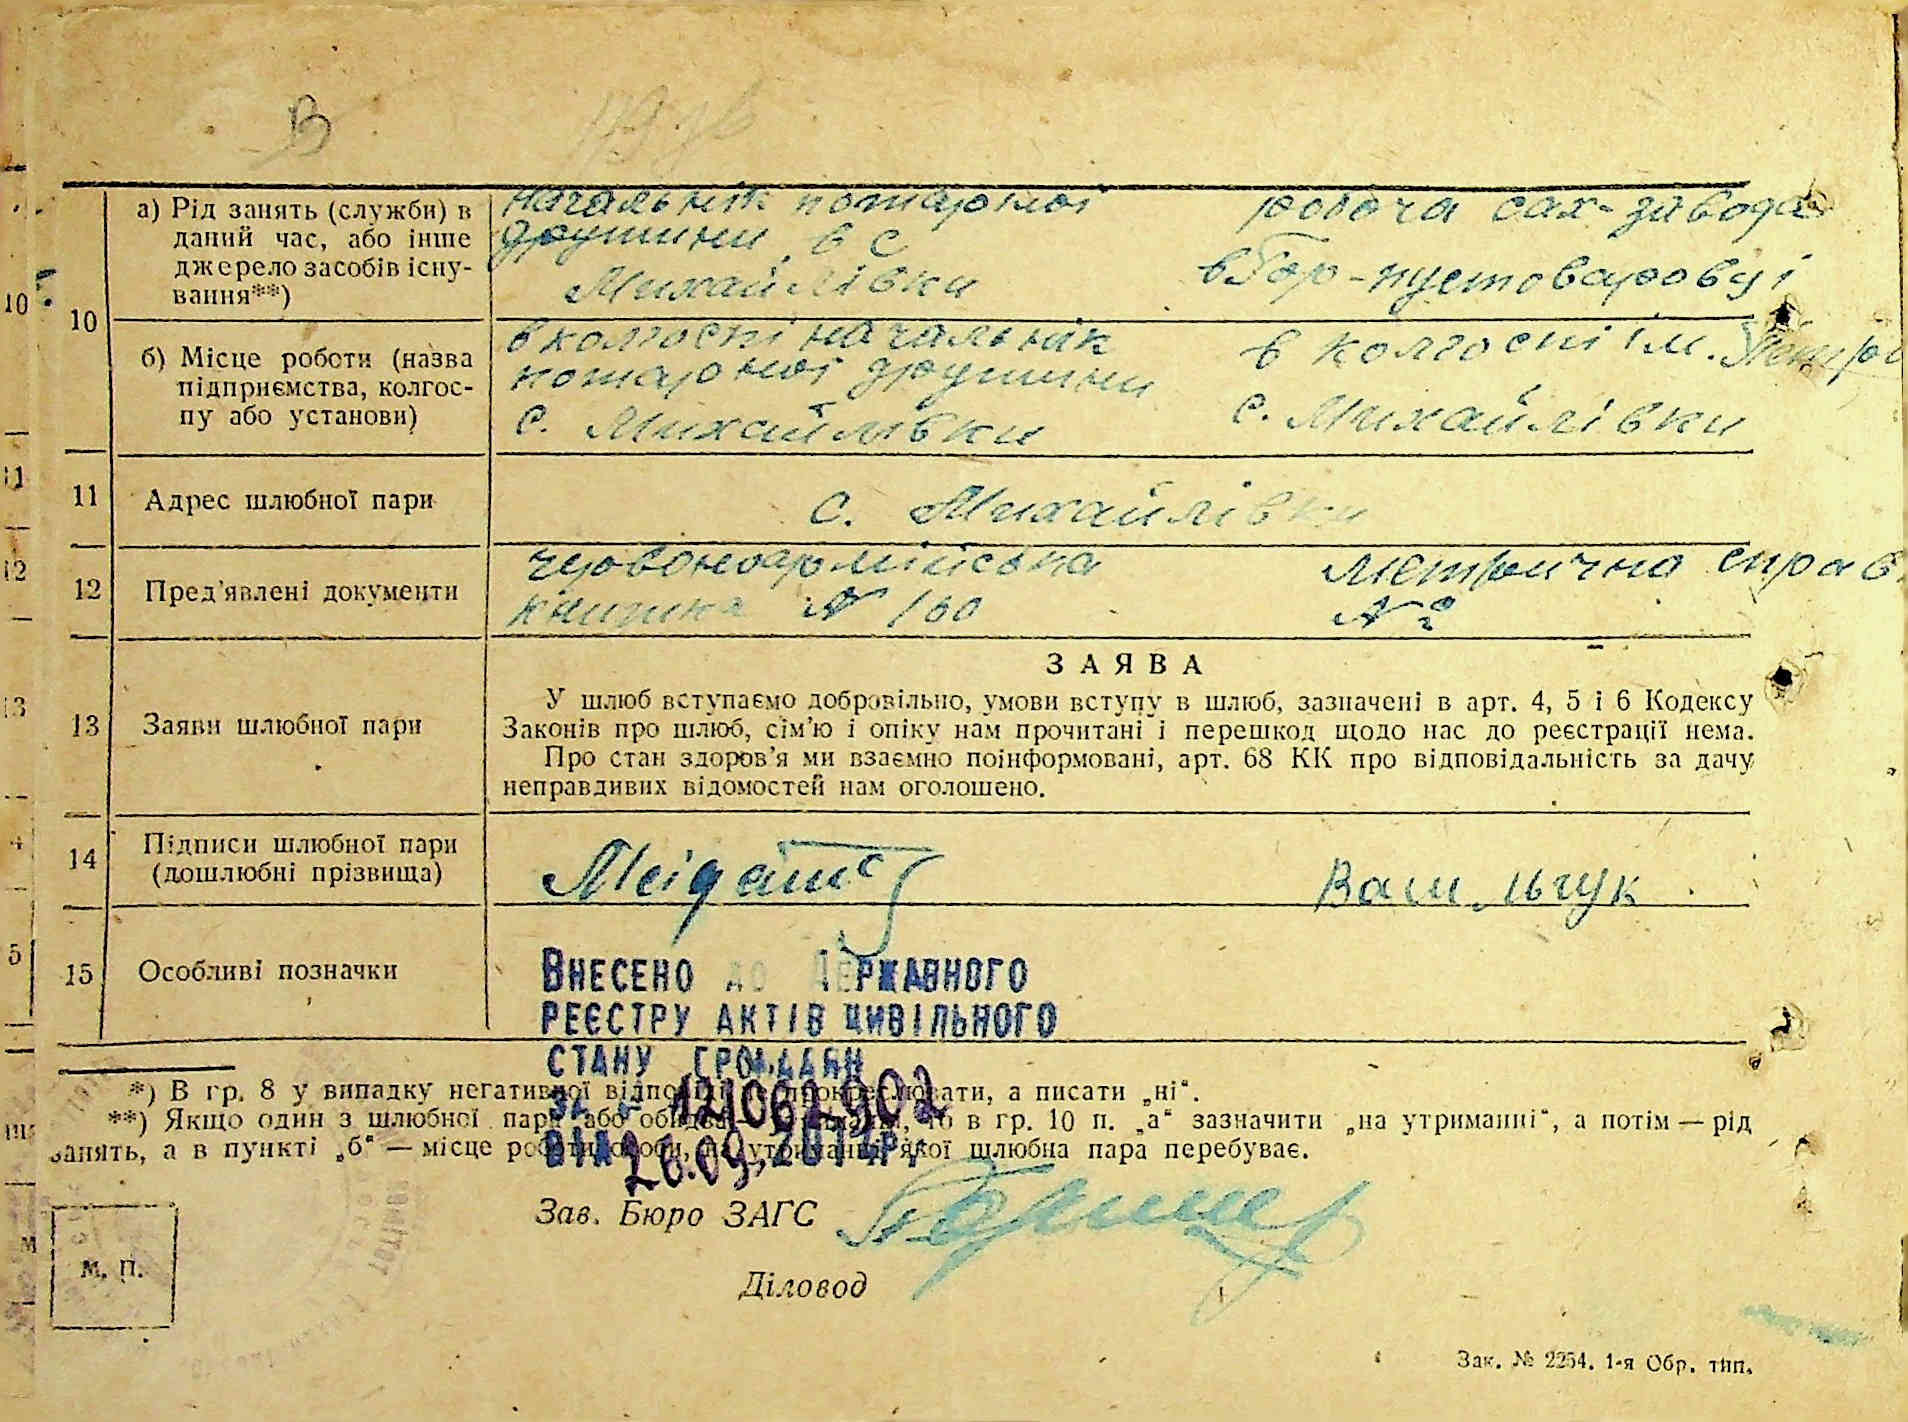 В
10
а) Рід занять (служби) в
даний час, або інше
джерело засобів існу-
вання**)
начальнік пожарної
дружини в с
Михайлівки
робоча сах-завода
в Гор-пустоварові
б) Місце роботи (назва
підприємства, колгос-
пу або установи)
в колгоспі начальнік
пожарної дружини
с. Михайлівки
в колгоспі ім.
с. Михайлівки
11 Адрес шлюбної пари
с. Михайлівки
12 Пред'явлені документи
червоноармійська
книжка № 160
метрична справ.
№ 2
13 Заяви шлюбної пари
ЗАЯВА
У шлюб вступаємо добровільно, умови вступу в шлюб, зазначені в арт. 4, 5 і 6 Кодексу
Законів про шлюб, сім'ю і опіку нам прочитані і перешкод щодо нас до реєстрації нема.
Про стан здоров'я ми взаємно поінформовані, арт. 68 КК про відповідальність за дачу
неправдивих відомостей нам оголошено.
14 Підписи шлюбної пари
(дошлюбні прізвища)
Васильчук
15 Особливі позначки
ВНЕСЕНО ДО ДЕРЖАВНОГО
РЕЄСТРУ АКТІВ ЦИВІЛЬНОГО
СТАНУ ГРОМАДЯН
ЗА №
ВІД 26.09.
*) В гр. 8 у випадку негативної відповіді не прокреслювати, а писати „ні“.
**) Якщо один з шлюбної пари або обидва на утриманні, то в гр. 10 п. „а“ зазначити „на утриманні“, а потім — рід
занять, а в пункті „б“ — місце роботи особи, на утриманні якої шлюбна пара перебуває.
Зав. Бюро ЗАГС
Діловод
М. П.
Зак. № 2254. 1-я Обр. тип.